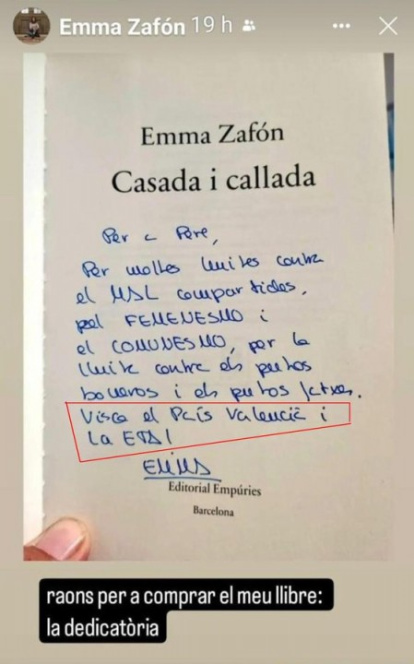 Emma Zafón 19 h
Emma Zafón
Casada i callada
Per a Pere,
Per moltes lluites contra
el MSL compartides,
pel FEMENESMO i
el COMUNESMO, per la
lluita contra els putos
boueros i els putos fatxes.
Visca el País Valencià i
la ETA!
EMMA
Editorial Empúries
Barcelona
raons per a comprar el meu llibre:
la dedicatòria